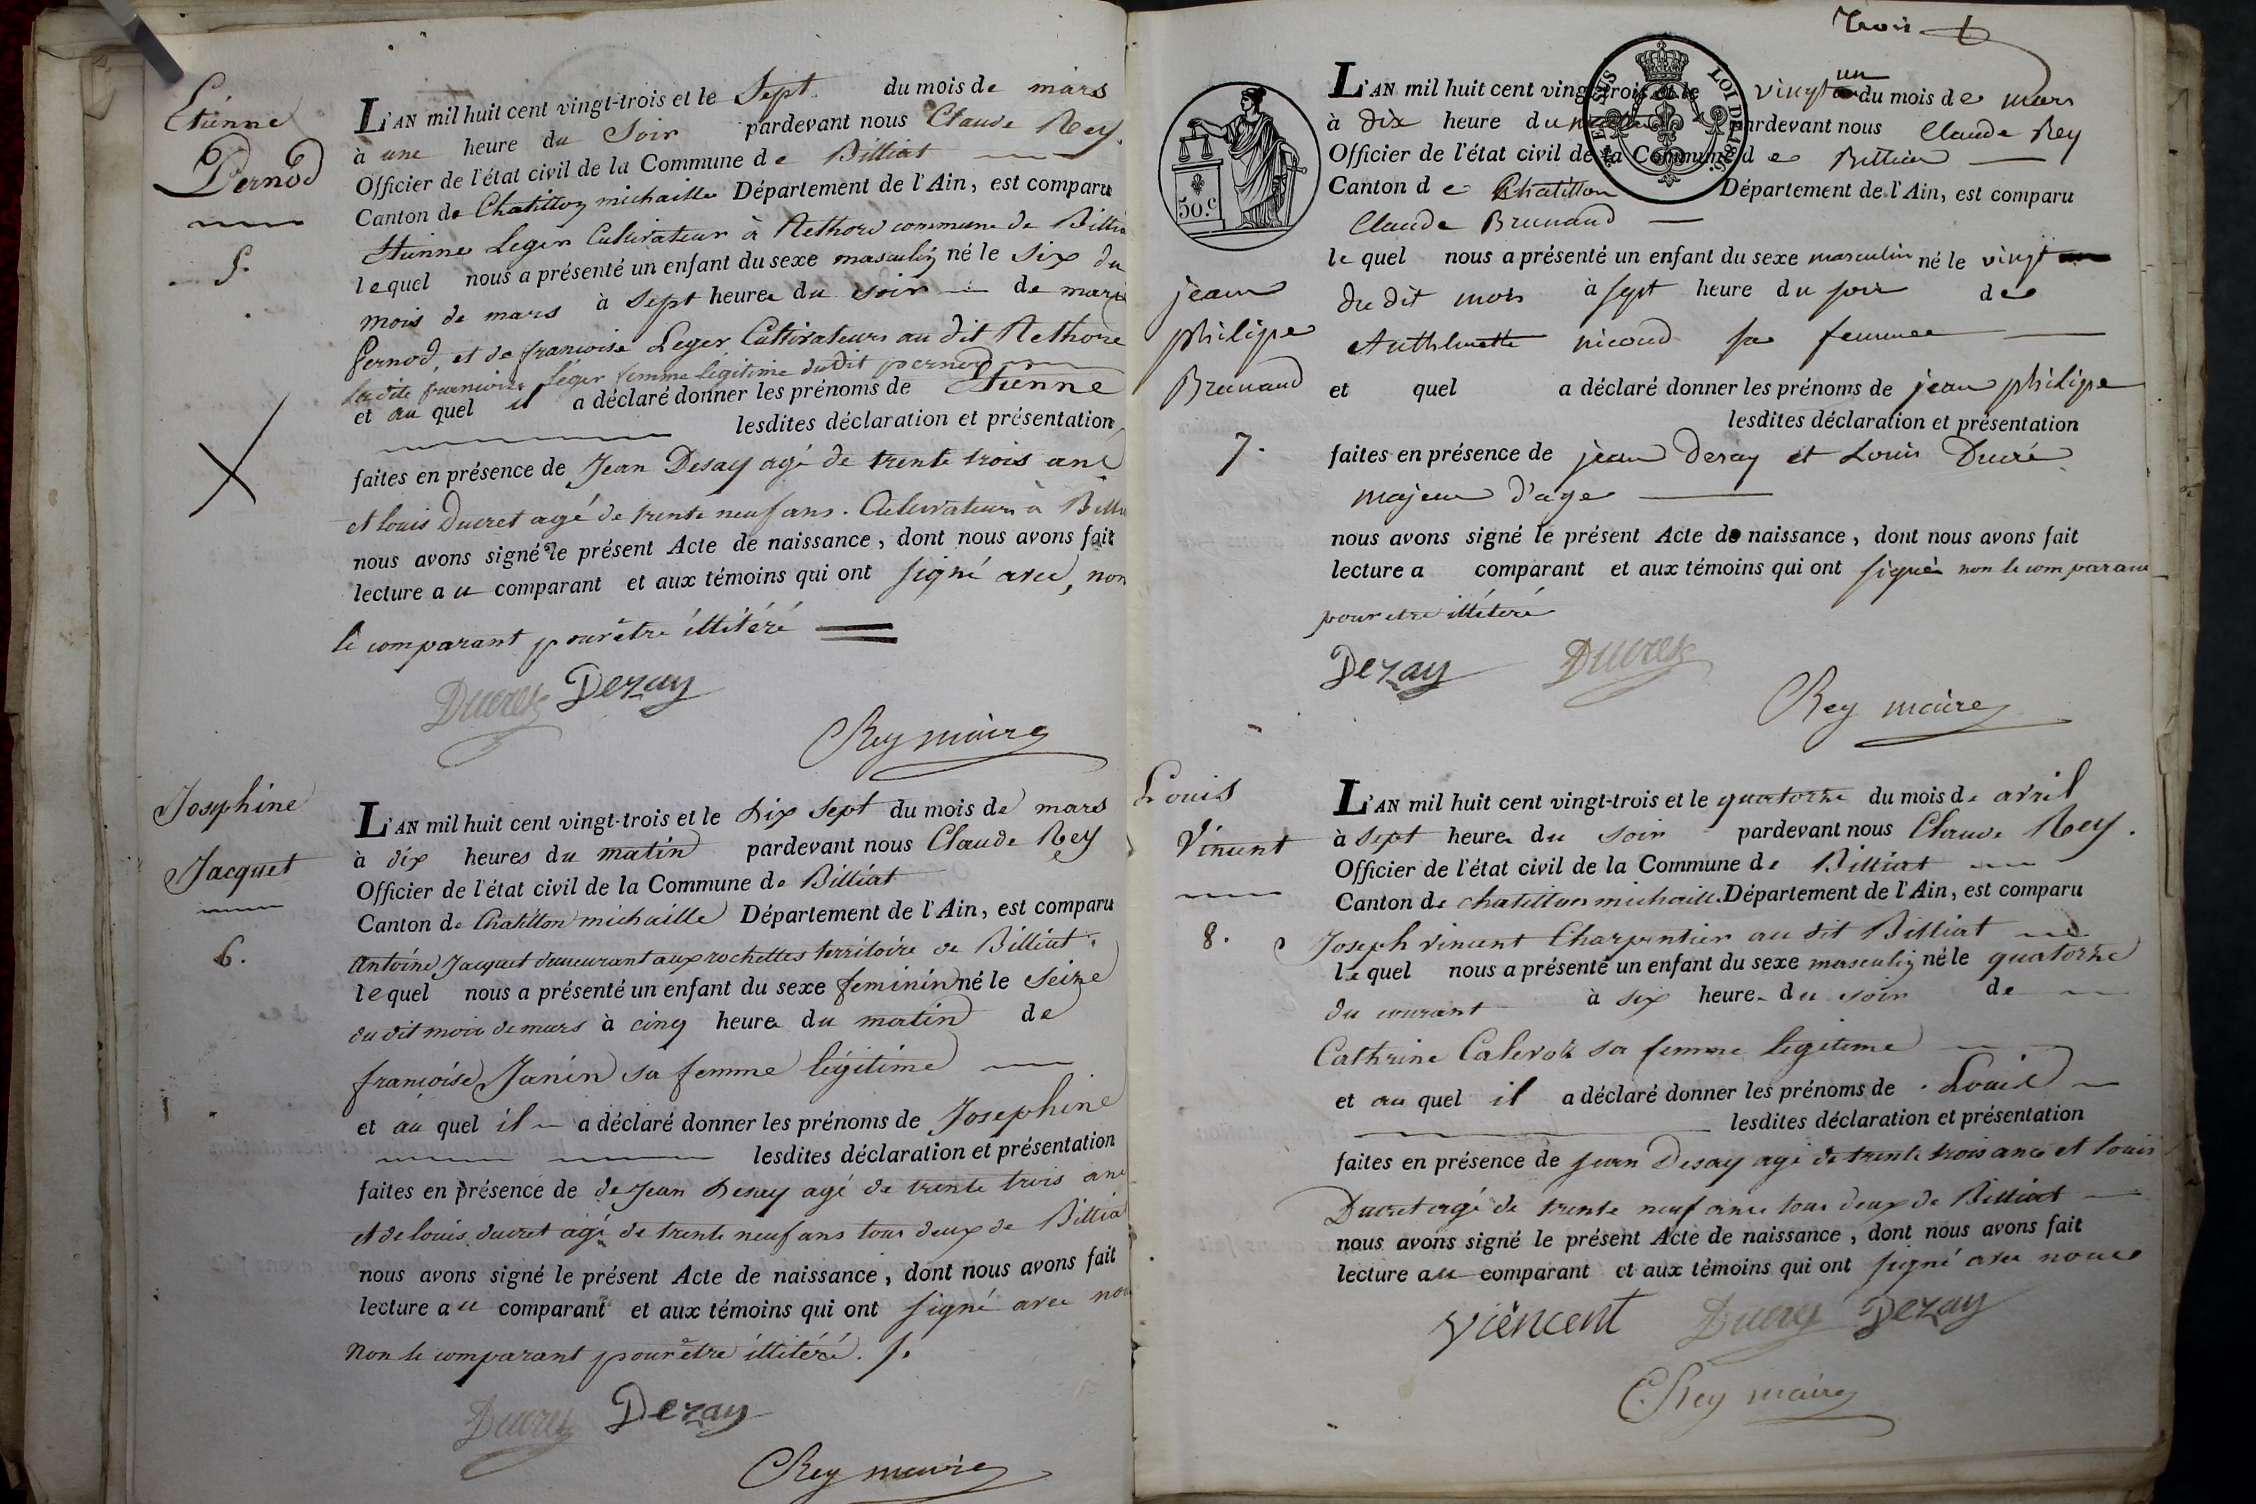 Etienne
Pernod
5.
L'AN mil huit cent vingt-trois et le Sept du mois de mars
à une heure du Soir pardevant nous Claude Rey.
Officier de l'état civil de la Commune de Billiat
Canton de Chatillon michaille Département de l'Ain, est comparu
Etienne Leger Cultivateur à Rethord commune de Billia
lequel nous a présenté un enfant du sexe masculin né le six du
mois de mars à Sept heures du soir de marie
Pernod, et de francoise Leger Cultivateurs au dit Rethord
Ladite francoise Leger femme légitime dudit pernod
et au quel il a déclaré donner les prénoms de Etienne
lesdites déclaration et présentation
faites en présence de Jean Desay agé de trente trois ans
et louis Ducret agé de trente neuf ans. Cultivateurs à Billia
nous avons signé le présent Acte de naissance, dont nous avons fait
lecture au comparant et aux témoins qui ont signé avec, non
le comparant pour être illitéré
Ducret Dezay
Rey maire
Josephine
Jacquet
6.
L'AN mil huit cent vingt-trois et le dix sept du mois de mars
à dix heures du matin pardevant nous Claude Rey
Officier de l'état civil de la Commune de Billiat
Canton de Chatillon michaille Département de l'Ain, est comparu
Antoine Jacquet demeurant aux rochettes territoire de Billiat.
lequel nous a présenté un enfant du sexe feminin né le seize
du dit mois de mars à cinq heures du matin de
francoise Janin sa femme légitime
et au quel il a déclaré donner les prénoms de Josephine
lesdites déclaration et présentation
faites en présence de de Jean Desay agé de trente trois ans
et de louis ducret agé de trente neuf ans tous deux de Billia
nous avons signé le présent Acte de naissance, dont nous avons fait
lecture au comparant et aux témoins qui ont signé avec nous
Non le comparant pour être illitéré.
Ducret Dezay
Rey maire
trois
50.c
LOI DE 1816
jean
philipe
Brunaud
7.
L'AN mil huit cent vingt-trois et le vingt un du mois de mars
à dix heure du pardevant nous Claude Rey
Officier de l'état civil de la Commune de Billiat
Canton de Chatillon Département de l'Ain, est comparu
Claude Brunaud
le quel nous a présenté un enfant du sexe masculin né le vingt
du dit mois à sept heure du soir de
Anthelmette nicoud sa femme
et quel a déclaré donner les prénoms de jean philipe
lesdites déclaration et présentation
faites en présence de jean deray et Louis Ducré
majeur d'age
nous avons signé le présent Acte de naissance, dont nous avons fait
lecture a comparant et aux témoins qui ont signé non le comparant
pour etre illitéré
Dezay Ducret
Rey maire
Louis
Vincent
8.
L'AN mil huit cent vingt-trois et le quatorze du mois de avril
à sept heures du soir pardevant nous Claude Rey.
Officier de l'état civil de la Commune de Billiat
Canton de chatillon michaille Département de l'Ain, est comparu
Joseph Vincent Charpentier au dit Billiat
le quel nous a présenté un enfant du sexe masculin né le quatorze
du courant à six heures du soir de
Cathrine Calevoz sa femme légitime
et au quel il a déclaré donner les prénoms de Louis
lesdites déclaration et présentation
faites en présence de jean Desay agé de trente trois ans et louis
Ducret agé de trente neuf ans tous deux de Billiat
nous avons signé le présent Acte de naissance, dont nous avons fait
lecture au comparant et aux témoins qui ont signé avec nous
Viencent Ducret Dezay
C. Rey maire